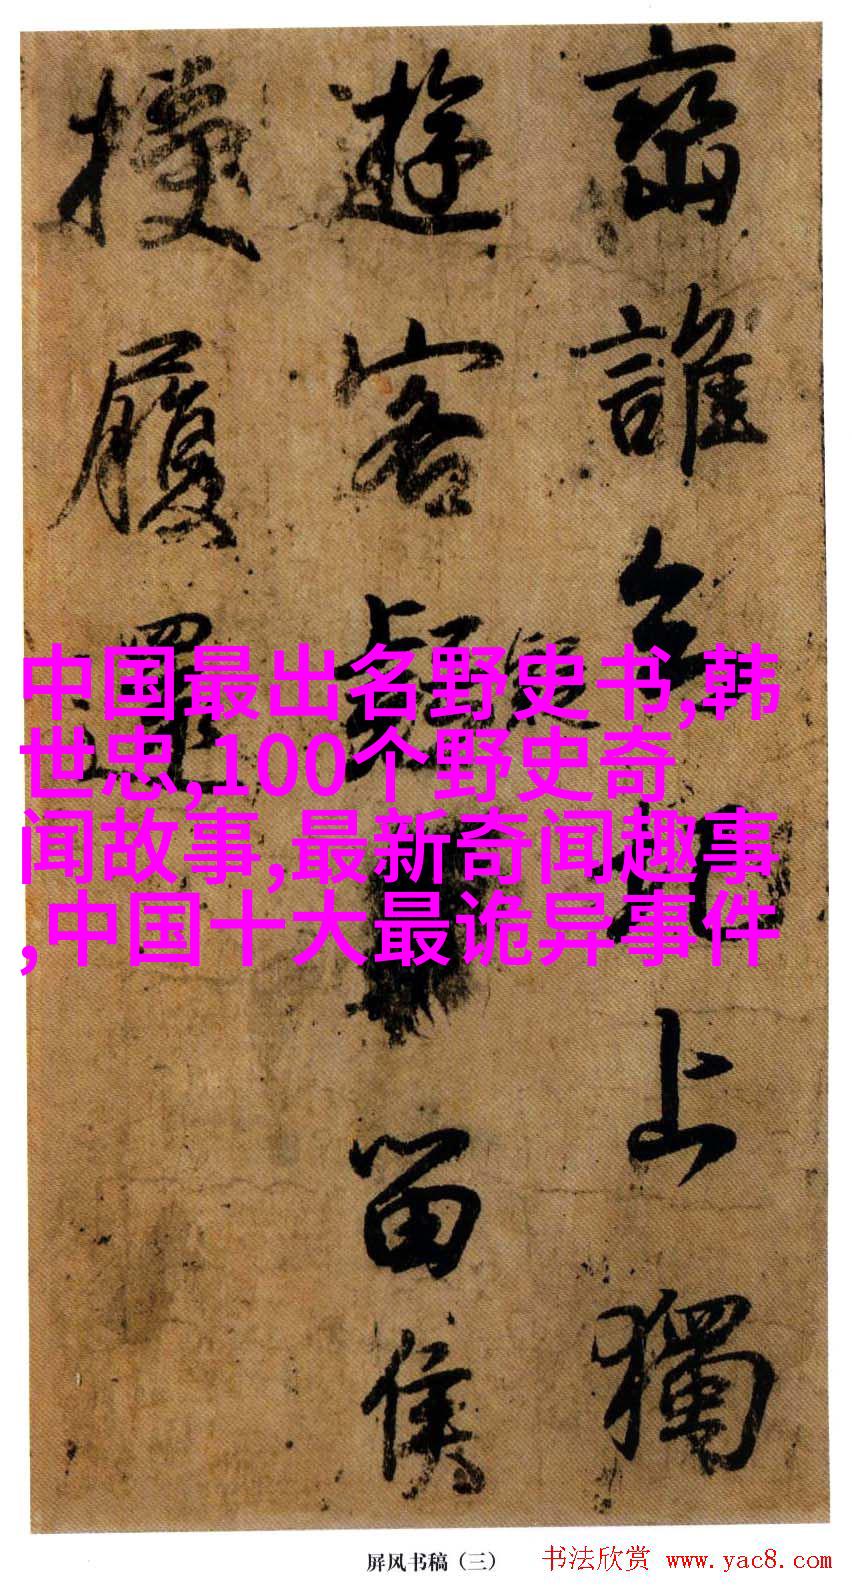 誰上獨
遊客疑從留侯
履還
中国最出名野史书,韩
世忠,100个野史奇
闻故事,最新奇闻趣事
,中国十大最诡异事件
屏风书稿（三） 书法欣赏 www.yac8.com